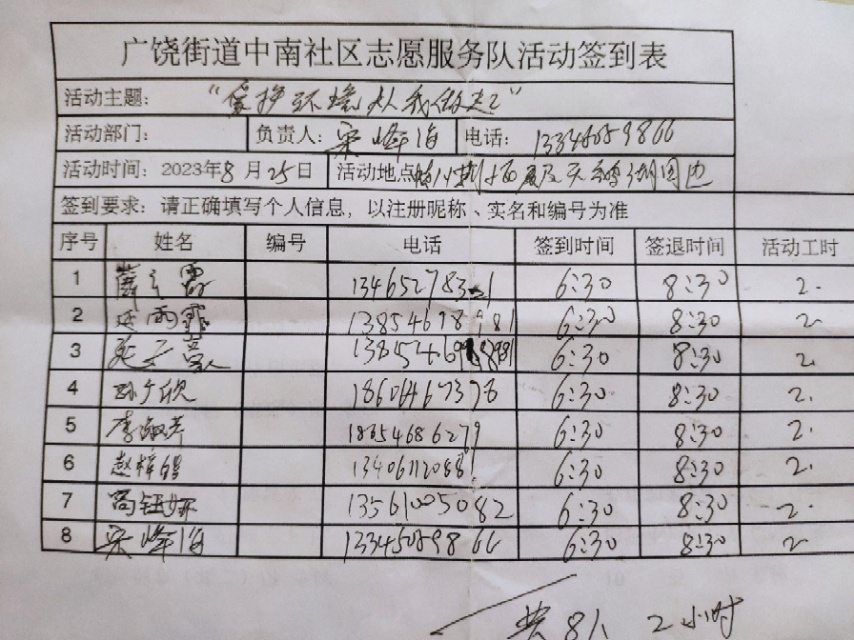 广饶街道中南社区志愿服务队活动签到表
活动主题： “爱护环境从我做起”
活动部门： 负责人：宋峰海 电话：13345059866
活动时间：2023年8月25日 活动地点 及天鹅湖周边
签到要求：请正确填写个人信息，以注册昵称、实名和编号为准
序号 姓名 编号 电话 签到时间 签退时间 活动工时
1 6:30 8:30 2.
2 延雨霏 6:30 8:30 2
3 6:30 8:30 2.
4 孙广欣 18606467378 6:30 8:30 2.
5 李淑芹 18654686279 6:30 8:30 2.
6 赵梓皓 13406112088 6:30 8:30 2.
7 钰妍 13561005082 6:30 8:30 2.
8 宋峰海 13345059866 6:30 8:30 2
共8人 2小时